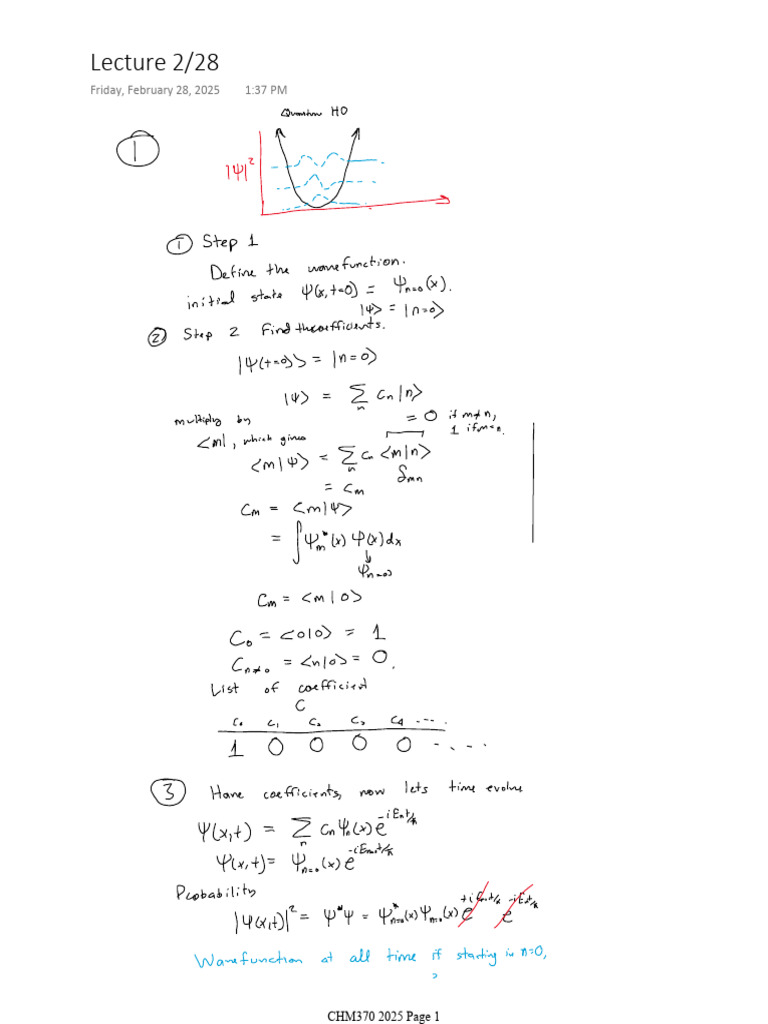 Lecture 2/28
Friday, February 28, 2025 1:37 PM
Quantum HO
1
|Ψ|²
① Step 1
Define the wavefunction.
initial state Ψ(x,t=0) = Ψn=0(x).
|Ψ> = |n=0>
② Step 2 Find the coefficients.
|Ψ(t=0)> = |n=0>
|Ψ> = Σn cn|n>
multiply by
= 0 if m≠n,
1 if m=n.
<m|, which gives
<m|Ψ> = Σn cn <m|n>
δmn
= cm
Cm = <m|Ψ>
= ∫Ψm*(x) Ψ(x)dx
↓
Ψn=0
Cm = <m|0>
C0 = <0|0> = 1
Cn≠0 = <n|0> = 0.
List of coefficient
C
C0 C1 C2 C3 C4 ....
1 0 0 0 0 -...
③ Have coefficients, now lets time evolve
Ψ(x,t) = Σn cnΨn(x)e^-iEnt/ħ
Ψ(x,t) = Ψn=0(x)e^-iEn=0t/ħ
Probability
|Ψ(x,t)|² = Ψ*Ψ = Ψn=0*(x)Ψn=0(x)e^+iEn=0t/ħ e^-iEnt/ħ
Wavefunction at all time if starting in n=0,
CHM370 2025 Page 1